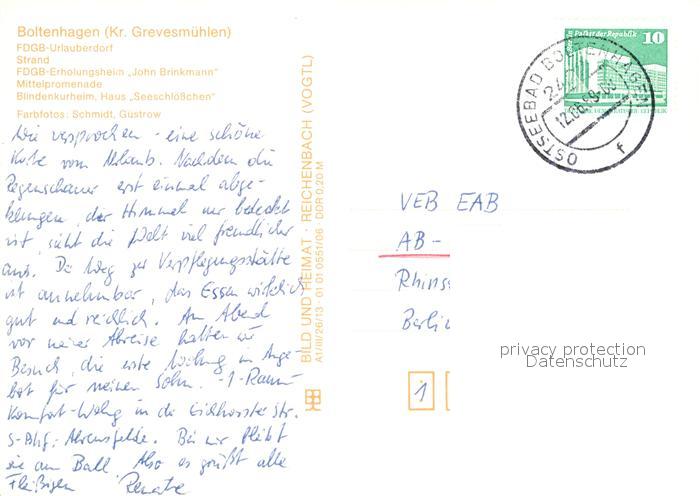 Boltenhagen (Kr. Grevesmühlen)
FDGB-Urlauberdorf
Strand
FDGB-Erholungsheim „John Brinkmann"
Mittelpromenade
Blindenkurheim, Haus „Seeschlößchen"
Farbfotos: Schmidt, Güstrow
Wie versprochen - eine schöne
Karte vom Urlaub. Nachdem die
Regenschauer erst einmal abge-
klungen, der Himmel nur bedeckt
ist, sieht die Welt viel freundlicher
aus. Der Weg zur Verpflegungsstätte
ist annehmbar, das Essen wirklich
gut und reichlich. Am Abend
vor meiner Abreise hatten wir
Besuch, die erste Wohnung im Ange-
bot für meinen Sohn. - 1-Raum-
Komfort-Wohng in der Eichhorster Str.
S-Bhf.-Ahrensfelde. Bei mir bleibt
sie am Ball. Also es grüßt alle
Fleißigen Renate
BILD UND HEIMAT · REICHENBACH (VOGTL)
A1/III/26/13 · 01 01 0551/06 DDR 0,20 M
Palast der Republik 10
OSTSEEBAD BOLTENHAGEN
12.06.89-08
f
VEB EAB
AB-
Rhins
Berlin
privacy protection
Datenschutz
1